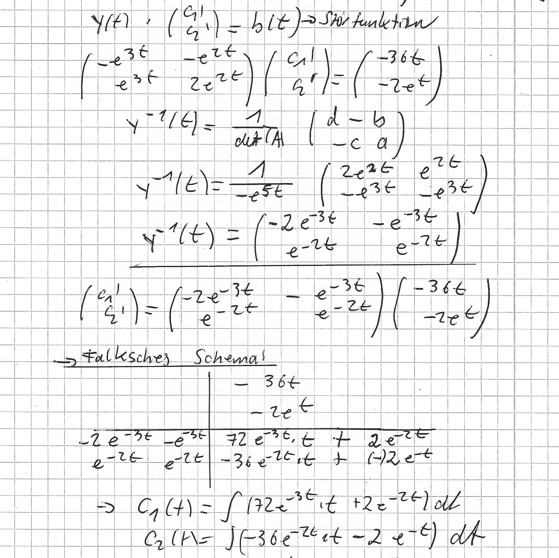 Y(t) · (c₁' / c₂') = b(t) → Störfunktion
(-e^3t  -e^2t / e^3t  2e^2t) (c₁' / c₂') = (-36t / -2e^t)
Y^-1(t) = 1/det(A) (d  -b / -c  a)
Y^-1(t) = 1/-e^5t (2e^2t  e^2t / -e^3t  -e^3t)
Y^-1(t) = (-2e^-3t  -e^-3t / e^-2t  e^-2t)
(c₁' / c₂') = (-2e^-3t  -e^-3t / e^-2t  e^-2t) (-36t / -2e^t)
→ Falksches Schema
-36t
-2e^t
-2e^-3t  -e^-3t | 72e^-3t·t + 2e^-2t
e^-2t  e^-2t | -36e^-2t·t + (-)2e^-t
→ C₁(t) = ∫(72e^-3t·t + 2e^-2t) dt
C₂(t) = ∫(-36e^-2t·t - 2e^-t) dt